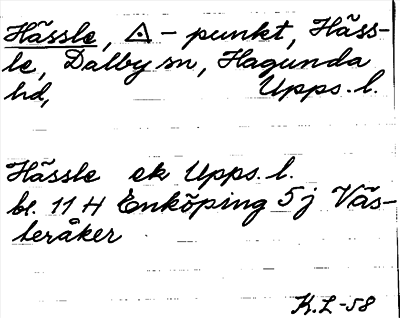 Hässle, △ - punkt, Häss-
le, Dalby sn, Hagunda
hd, Upps. l.
Hässle ek Upps. l.
bl. 11 H Enköping 5 j Väs-
teråker
K.L-58